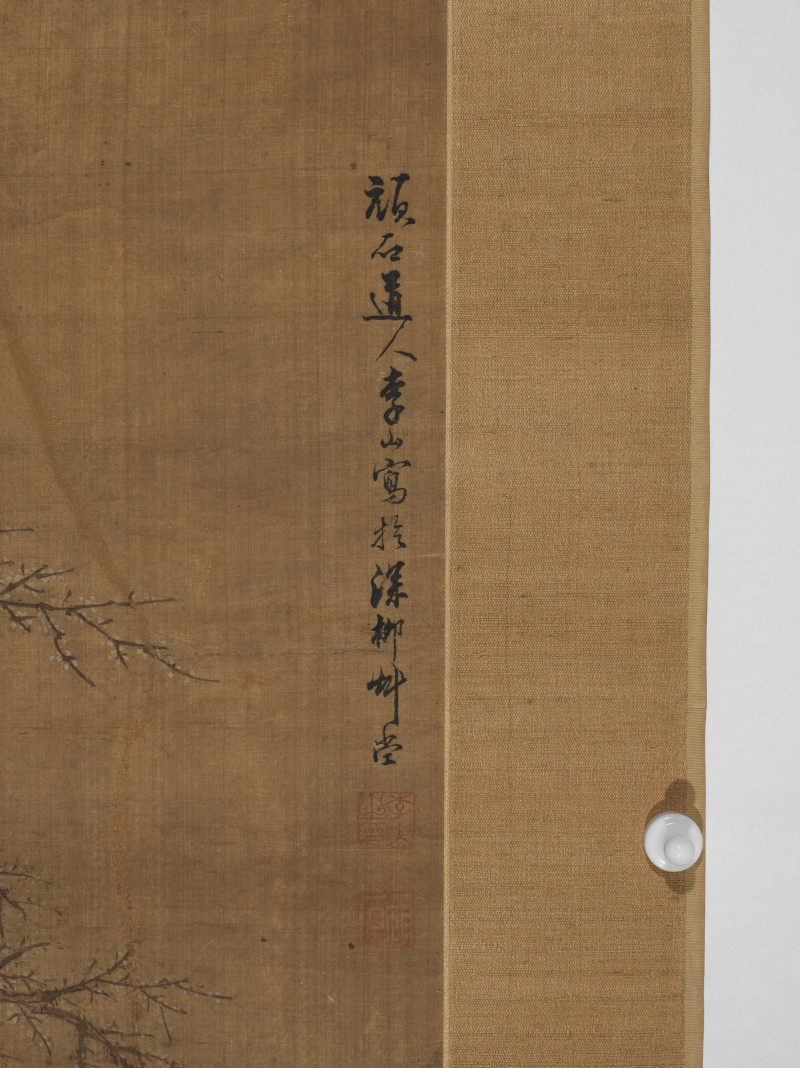 頑石道人李山寫於深柳艸堂